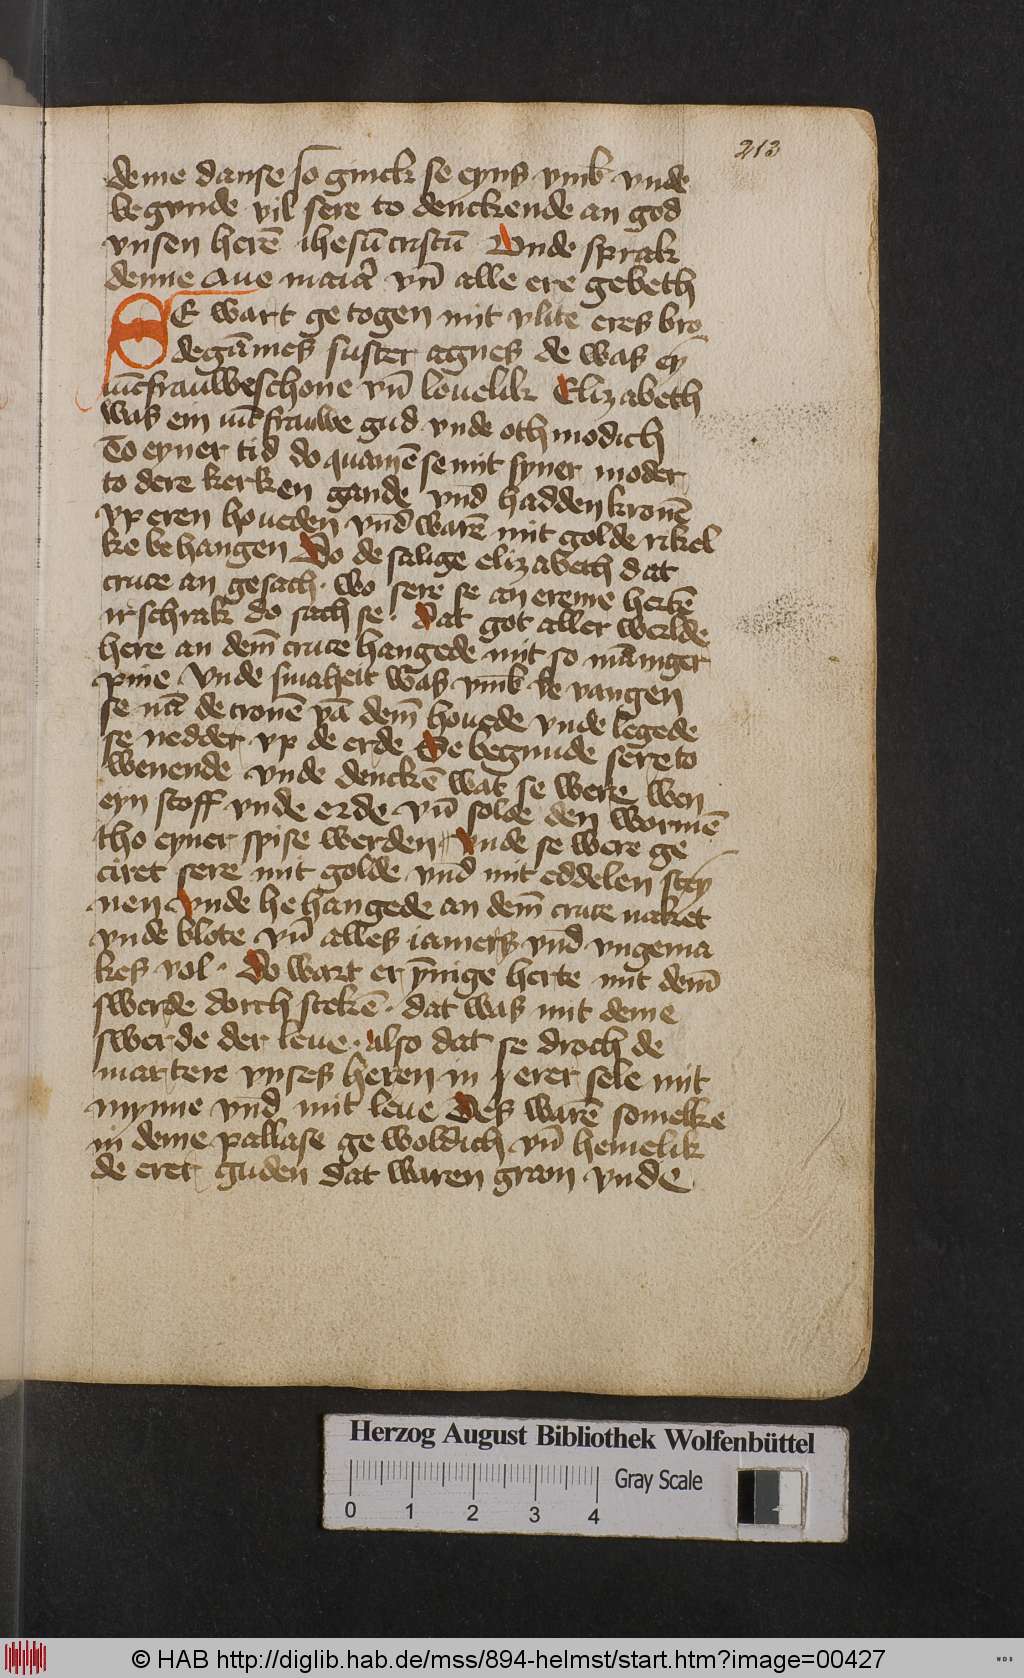 213
deme danse so ginck se eyns vmb vnde
begynde vil sere to denckende an god
vnsen herē ihesū cristū Vnde sprak
denne Aue maiā vn̄ alle ere gebeth
SE wart getogen mit vlite eres bro
degāmes suster agnes de was ey
iūcfrauwe schone vn̄ louelik Elizabeth
was ein iūcfrauwe gud vnde othmodich
To eyner tid do quamē se mit syner moder
to dere kerken gande vnd̄ hadden kronē
vp eren houeden vnd̄ warē mit golde rikel
ke behangen Do de salige elizabeth dat
cruce an gesach · wo sere se an ereme hertē
irschrak do sach se · Dat got aller werlde
here an dem̄ cruce hangede mit so māniger
pine Vnde smaheit was vm̄b be vangen
se nā de cronē vā dem̄ houede vnde legede
se nedder vp de erde Se begunde sere to
wenende vnde denckē wat se were wen
eyn stoff vnde erde vn̄ solde den wormē
tho eyner spise werden · Vnde se were ge
ciret sere mit golde vnd̄ mit eddelen stey
nen Vnde he hangede an dem̄ cruce naket
vnde blote vn̄ alles iamers vnd̄ vngema
kes vol · Do wart er ynnige herte mit dem̄
swerde dorch stekē · dat was mit deme
swerde der leue · also dat se droch de
martere vnses heren in yerer sele mit
mynne vnd̄ mit leue Des warē somelke
in deme pallase ge woldich vn̄ hemelik
de eret guden dat waren gram vnde
Herzog August Bibliothek Wolfenbüttel
Gray Scale
0 1 2 3 4
© HAB http://diglib.hab.de/mss/894-helmst/start.htm?image=00427